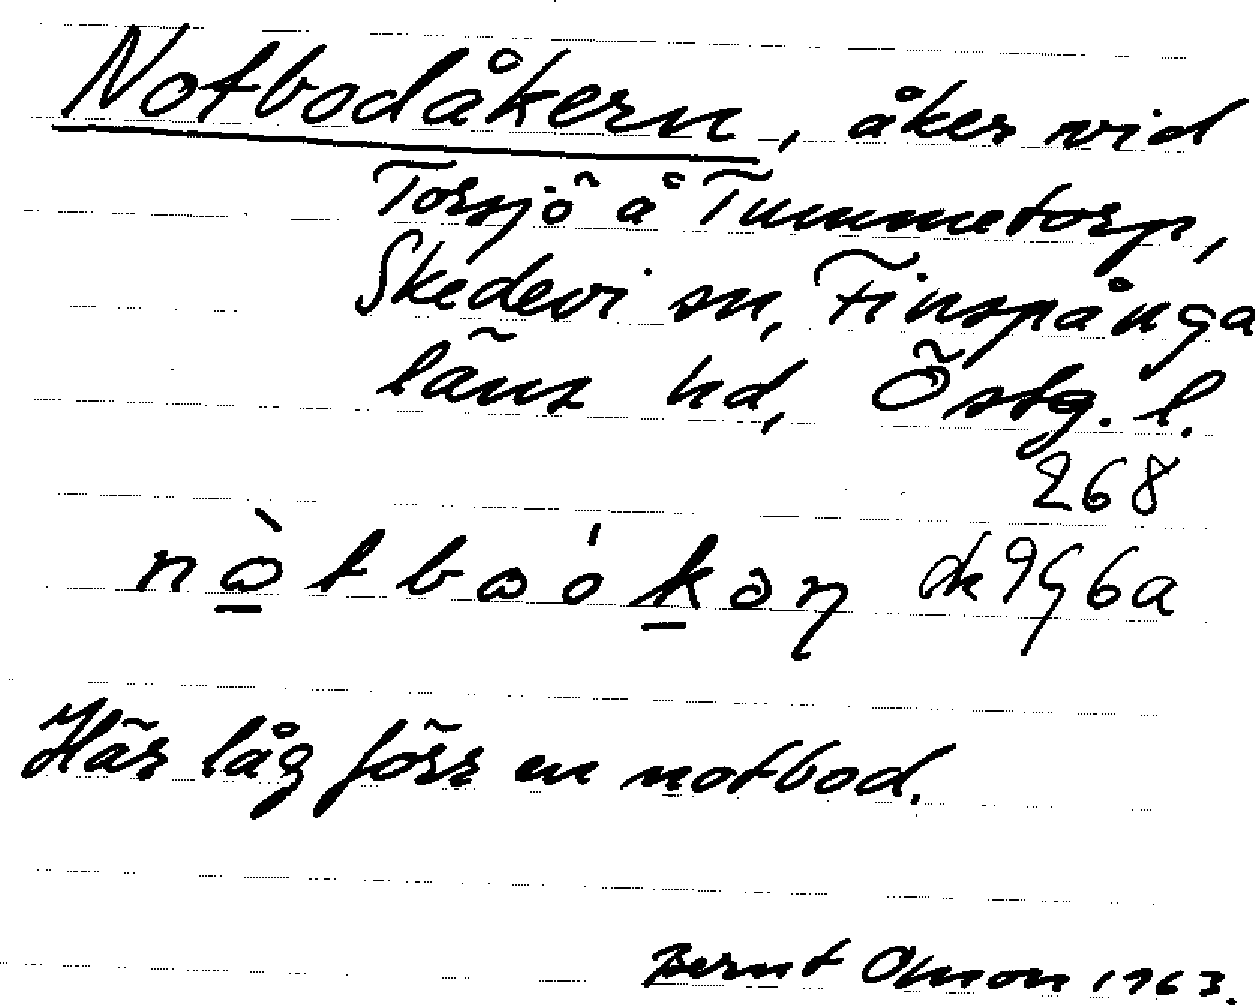 Notbodåkern, åker vid
Torsjö å Tummetorp,
Skedevi sn, Finspånga
läns hd, Östg. l.
268
nòtboókən ek 9G6a
Här låg förr en notbod.
Bernt Olsson 1963.